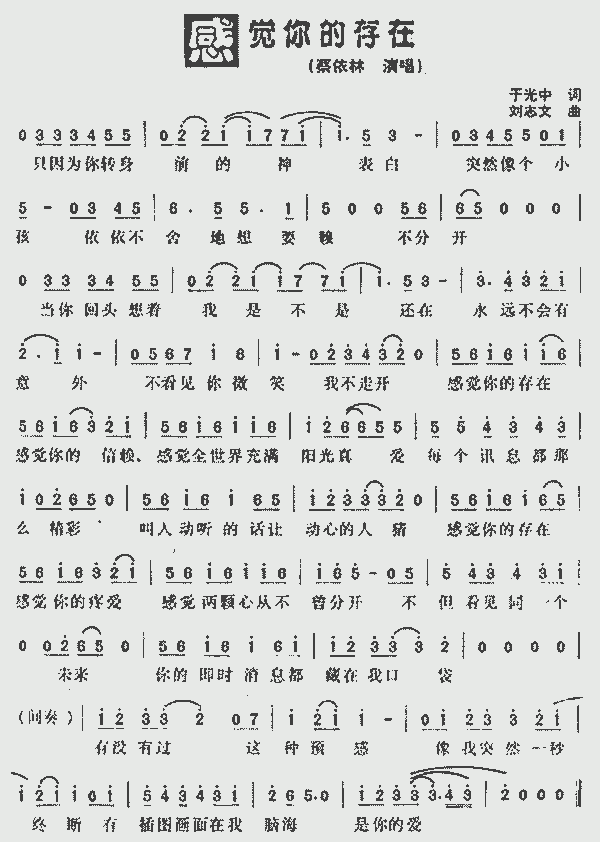 感觉你的存在
(蔡依林 演唱)
于光中 词
刘志文 曲
0 3 3 3 4 5 5 | 0 2 2 1 1 7 7 1 | 1. 5 3 - | 0 3 4 5 5 0 1 |
只因为你转身 前 的 神 表 白 突然像个 小
5 - 0 3 4 5 | 6. 5 5. 1 | 5 0 0 5 6 | 6 5 0 0 0 |
孩 依 依不 舍 地 想 耍 赖 不 分 开
0 3 3 3 4 5 5 | 0 2 2 1 1 7 7 1 | 1. 5 3 - | 3. 4 3 2 1 |
当你 回头 想着 我 是 不 是 还在 永 远不会有
2. 1 1 - | 0 5 6 7 1 6 | 1 - 0 2 3 4 3 2 0 | 5 6 1 6 1 1 6 |
意 外 不看见 你 微 笑 我不走开 感觉你的存在
5 6 1 6 3 2 1 | 5 6 1 6 1 1 6 | 1 2 6 6 5 5 | 5 5 4 3 4 3 |
感觉你的 信赖、感觉全世界充满 阳光真 爱 每 个 讯 息 都 那
1 0 2 6 5 0 | 5 6 1 6 1 6 5 | 1 2 3 3 3 2 0 | 5 6 1 6 1 6 5 |
么 精彩 叫人动听 的 话让 动心的人 猜 感觉你的存在
5 6 1 6 3 2 1 | 5 6 1 6 1 1 6 | 1 6 5 - 0 5 | 5 4 3 4 3 1 |
感觉你的疼爱 感觉两颗心从不 曾分开 不 但 看见 同 一个
0 0 2 6 5 0 | 5 6 1 6 1 6 1 | 1 2 3 3 3 2 | 0 0 0 0 |
未来 你的 即时 消 息都 藏在我口 袋
(间奏) | 1 2 3 3 2 0 7 | 1 2 1 1 - | 0 1 2 3 3 2 1 |
有没有过 这 种 预 感 像 我突 然 一秒
1 2 1 1 0 1 | 5 4 3 4 3 1 | 2 6 5. 0 | 1 2 3 3 3. 4 3 | 2 0 0 0 ||
终 断 有 插图画面在我 脑海 是你的爱